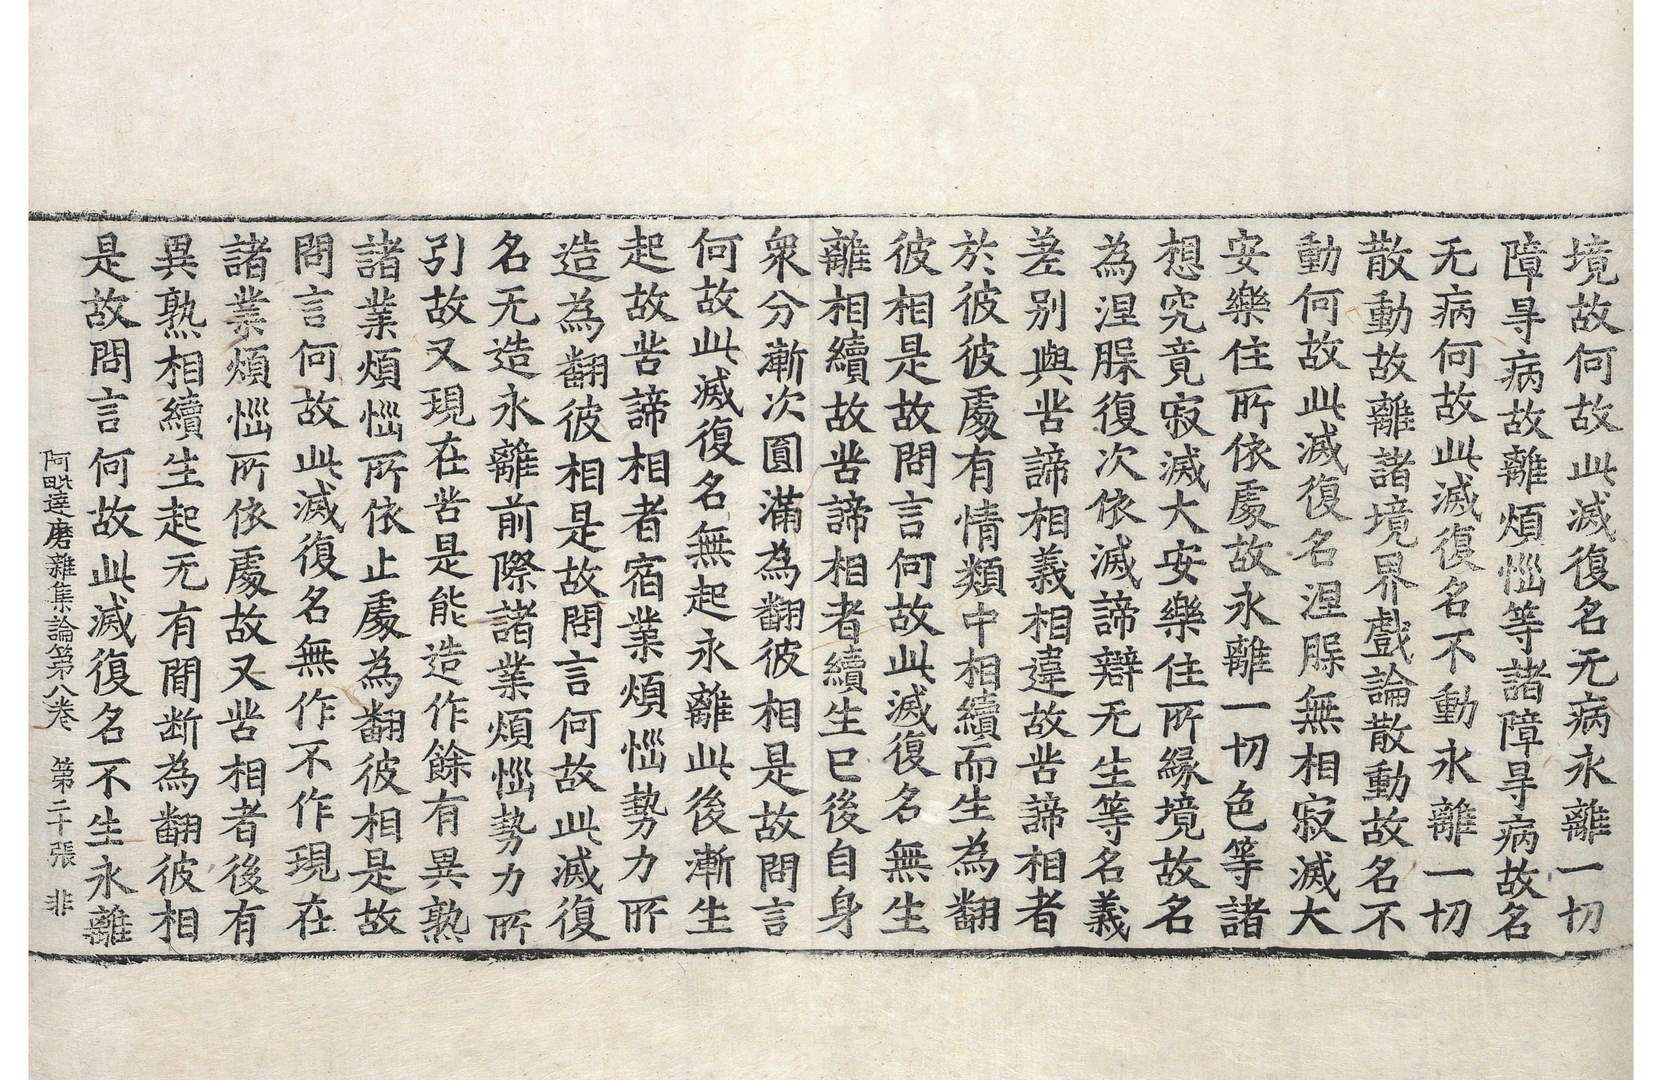 境故何故此滅復名无病永離一切
障㝵病故離煩惱等諸障㝵病故名
无病何故此滅復名不動永離一切
散動故離諸境界戲論散動故名不
動何故此滅復名涅槃無相寂滅大
安樂住所依處故永離一切色等諸
想究竟寂滅大安樂住所緣境故名
為涅槃復次依滅諦辯无生等名義
差別與苦諦相義相違故苦諦相者
於彼彼處有情類中相續而生為翻
彼相是故問言何故此滅復名無生
離相續故苦諦相者續生已後自身
衆分漸次圓滿為翻彼相是故問言
何故此滅復名無起永離此後漸生
起故苦諦相者宿業煩惱勢力所
造為翻彼相是故問言何故此滅復
名无造永離前際諸業煩惱勢力所
引故又現在苦是能造作餘有異熟
諸業煩惱所依止處為翻彼相是故
問言何故此滅復名無作不作現在
諸業煩惱所依處故又苦相者後有
異熟相續生起无有間断為翻彼相
是故問言何故此滅復名不生永離
阿毗達磨雜集論第八卷 第二十張 非